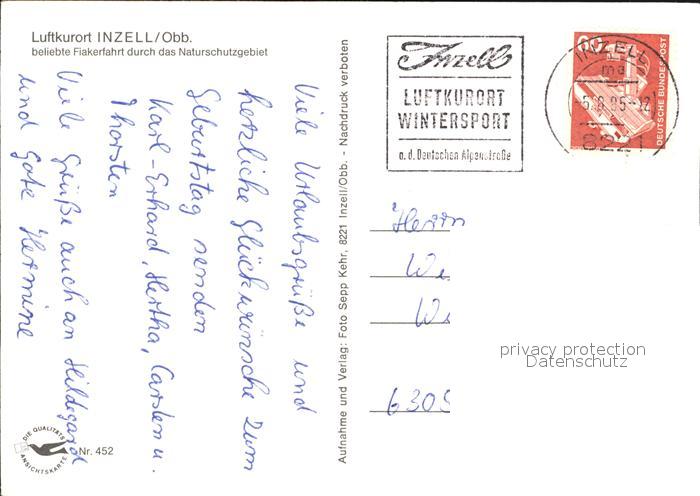 Luftkurort INZELL/Obb.
beliebte Fiakerfahrt durch das Naturschutzgebiet
Viele Urlaubsgrüße und
herzliche Glückwünsche zum
Geburtstag senden
Karl-Erhard, Hertha, Carsten u.
Thorsten
Viele Grüße auch an Hildegard
und Gote Hermine
DIE QUALITÄTS
ANSICHTSKARTE
Nr. 452
Aufnahme und Verlag: Foto Sepp Kehr, 8221 Inzell/Obb. - Nachdruck verboten
Inzell
LUFTKURORT
WINTERSPORT
a. d. Deutschen Alpenstraße
INZELL
8221
60
DEUTSCHE BUNDESPOST
Herrn
We
Wi
6305
privacy protection
Datenschutz